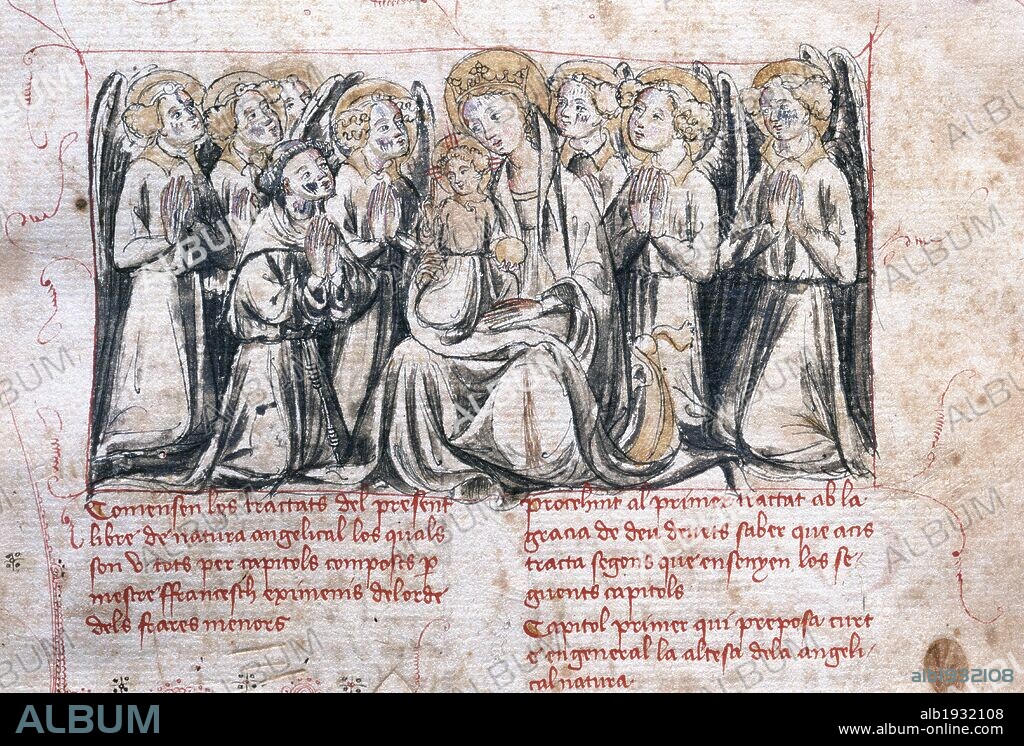 Comensen les tractats del present
libre de natura angelical los quals
son v tots per capitols composts p
mestre ffrancesch eximenis del orde
dels frares menors
procehint al primer tractat ab la
gracia de deu deveis saber que acis
tracta segons que ensenyen los se-
guents capitols
Capitol primer qui preposa curt
e en general la altesa dela angeli-
cal natura.
ALBUM
alb1932108
alb1932108
www.album-online.com